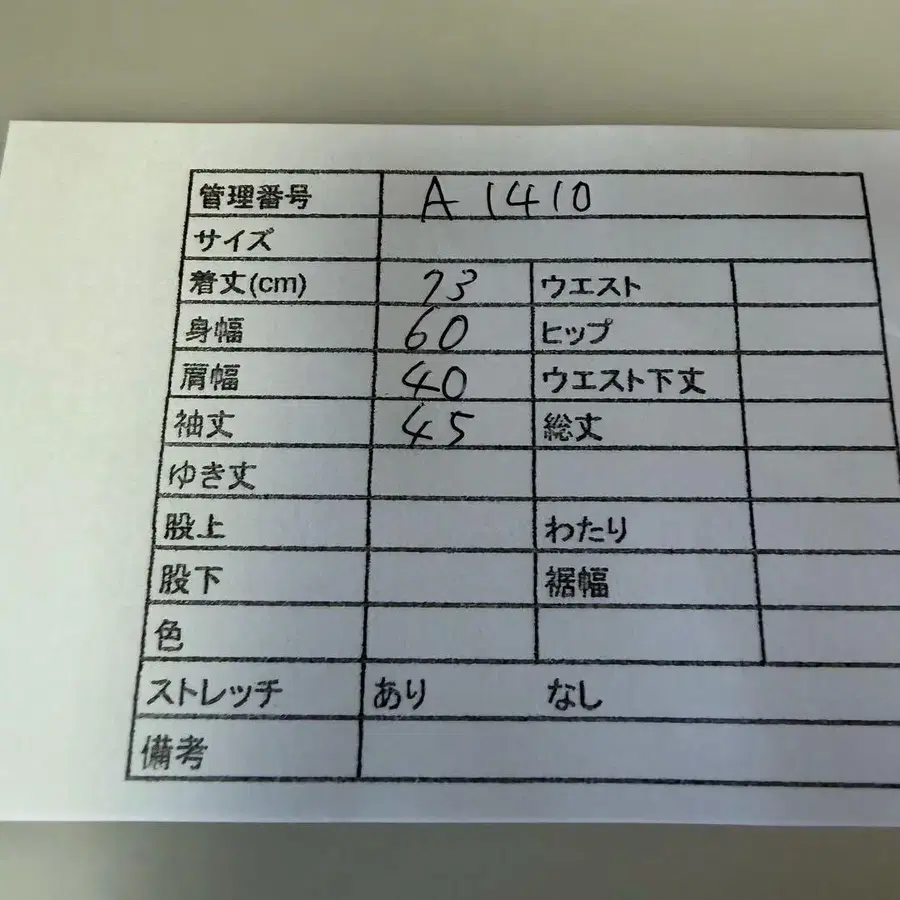 管理番号 A 1410
サイズ
着丈(cm) 73 ウエスト
身幅 60 ヒップ
肩幅 40 ウエスト下丈
袖丈 45 総丈
ゆき丈
股上 わたり
股下 裾幅
色
ストレッチ あり なし
備考